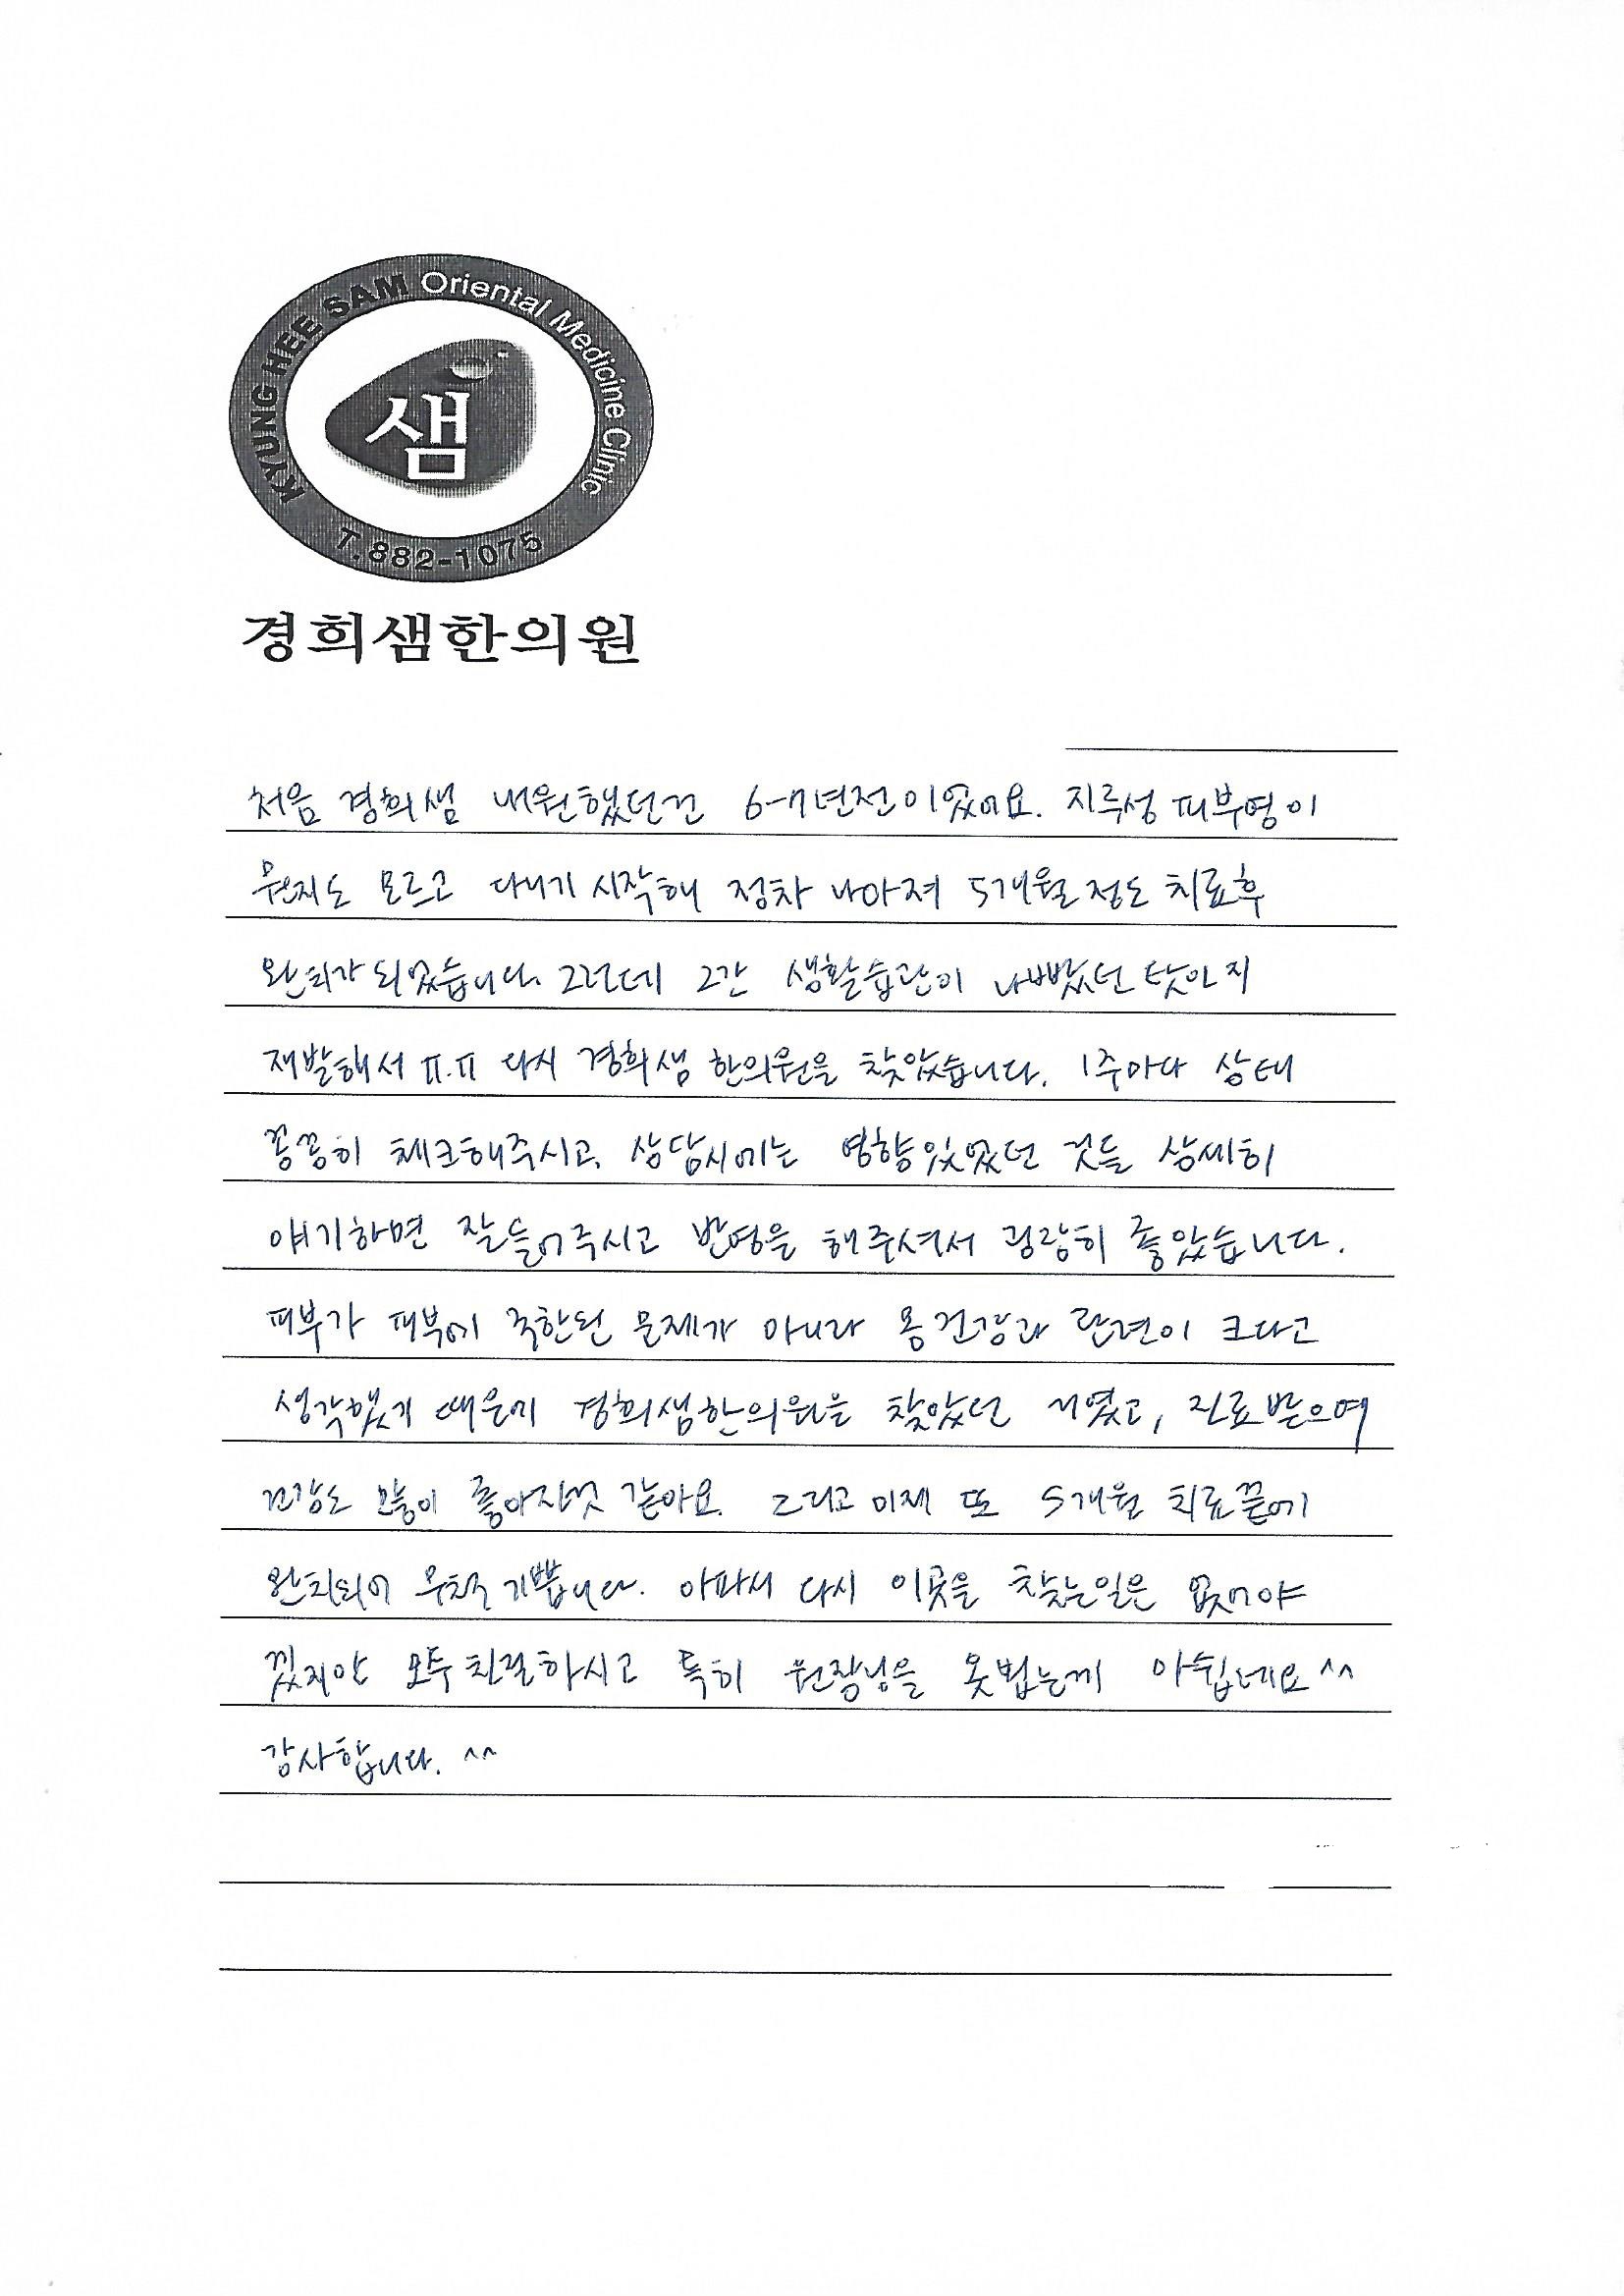 KYUNG HEE SAM Oriental Medicine Clinic
샘
T.882-1075
경희샘한의원
처음 경희샘 내원했던건 6-7년전이었어요. 지루성 피부염이
뭔지도 모르고 다니기 시작해 점차 나아져 5개월정도 치료후
완치가 되었습니다. 그런데 그간 생활습관이 나빴던 탓인지
재발해서 ㅠ.ㅠ 다시 경희샘 한의원을 찾았습니다. 1주마다 상태
꼼꼼히 체크해주시고, 상담시에는 영향있었던 것들 상세히
얘기하면 잘들어주시고 반영을 해주셔서 굉장히 좋았습니다.
피부가 피부에 국한된 문제가 아니라 몸건강과 관련이 크다고
생각했기 때문에 경희샘한의원을 찾았던 거였고, 진료받으며
건강도 많이 좋아진것 같아요. 그리고 이제 또 5개월 치료끝에
완치되어 무척 기쁩니다. 아파서 다시 이곳을 찾는일은 없어야
겠지만 모두친절하시고 특히 원장님을 못뵙는게 아쉽네요^^
감사합니다. ^^